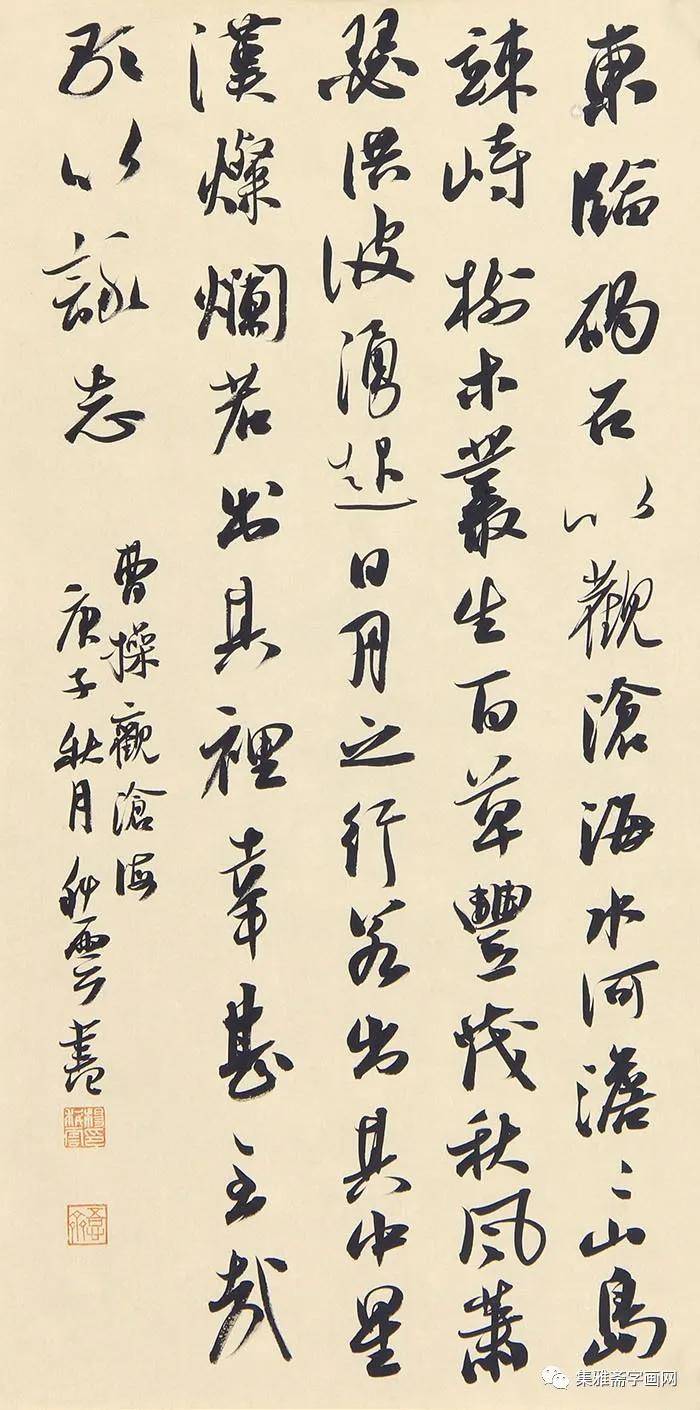 東臨碣石以觀滄海水何澹〻山島
竦峙樹木叢生百草豐茂秋風蕭
瑟洪波湧起日月之行若出其中星
漢燦爛若出其裡幸甚至哉
歌以詠志
曹操觀滄海
庚子秋月雲書
集雅斋字画网